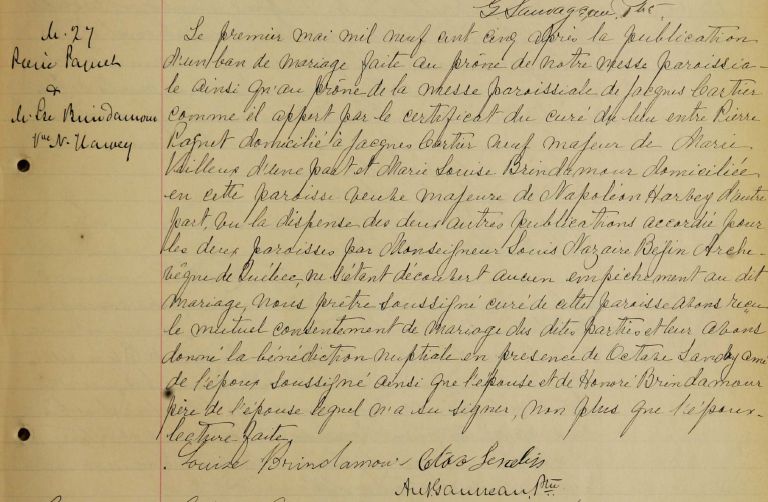 G Sauvageau, Ptre
M. 27
Pierre Paquet
&
M. Lse Brindamour
Vve N. Harvey
Le premier mai mil neuf cent cinq après la publication
d'un ban de mariage faite au prône de notre messe paroissia-
le ainsi qu'au prône de la messe paroissiale de Jacques Cartier
comme il appert par le certificat du curé du lieu entre Pierre
Paquet domicilié à Jacques Cartier veuf majeur de Marie
Vailleux d'une part et Marie Louise Brindamour domiciliée
en cette paroisse veuve majeure de Napoléon Harvey d'autre
part, vu la dispense des deux autres publications accordée pour
les deux paroisses par Monseigneur Louis Nazaire Bégin Arche-
vêque de Québec, ne s'étant découvert aucun empêchement au dit
mariage, Nous prêtre soussigné curé de cette paroisse avons reçu
le mutuel consentement de mariage des dites parties et leur avons
donné la bénédiction nuptiale en presence de Octave ami
de l'époux soussigné ainsi que l'épouse et de Honoré Brindamour
père de l'épouse lequel n'a su signer, non plus que l'époux.
Lecture faite.
Louise Brindamour
Ptre